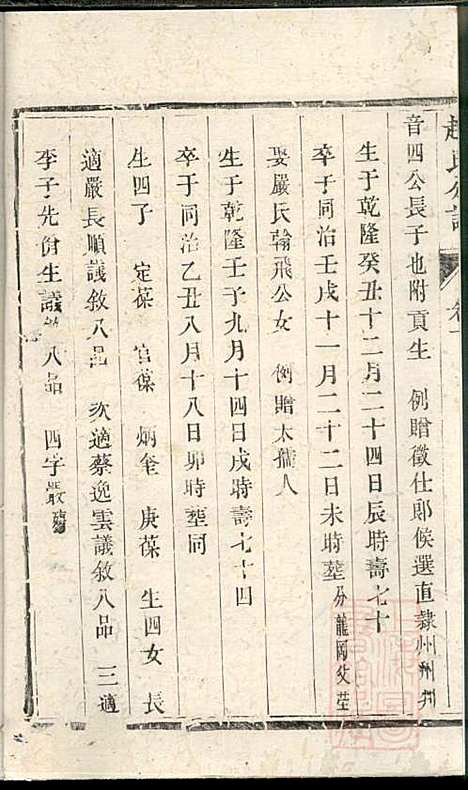 趙氏公譜 卷一
音四公長子也附貢生 例贈徵仕郎候選直隸州州判
生于乾隆癸丑十二月二十四日辰時壽七十
卒于同治壬戌十一月二十二日未時塟分龍岡父塋
娶嚴氏翰飛公女 例贈太孺人
生于乾隆壬子九月十四日戌時壽七十四
卒于同治乙丑八月十八日卯時塟同
生四子 定葆 宫葆 炳奎 庚葆 生四女 長
適嚴長順議敘八品 次適蔡逸雲議敘八品 三適
李子先佾生議敘八品 四字嚴